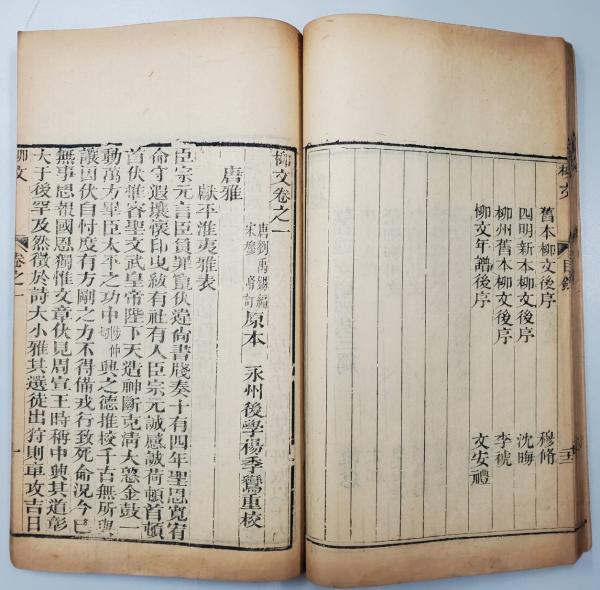 柳文 目錄
舊本柳文後序 穆脩
四明新本柳文後序 沈晦
柳州舊本柳文後序 李褫
柳文年譜後序 文安禮
柳文卷之一 唐劉禹錫編 宋穆脩訂 原本 永州後學楊季鸞重校
唐雅
獻平淮夷雅表
臣宗元言臣負罪竄伏違尙書牋奏十有四年聖恩寬宥
命守遐壤懷印曳紱有社有人臣宗元誠感誠荷頓首頓
首伏惟睿聖文武皇帝陛下天造神斷克清大憝金鼓一
動萬方畢臣太平之功中陟仲切興之德推校千古無所與
讓因伏自忖度有方剛之力不得備戎行致死命況今已
無事思報國恩獨惟文章伏見周宣王時稱中興其道彰
大于後罕及然徵於詩大小雅其選徒出狩則車攻吉日
柳文 卷之一 一